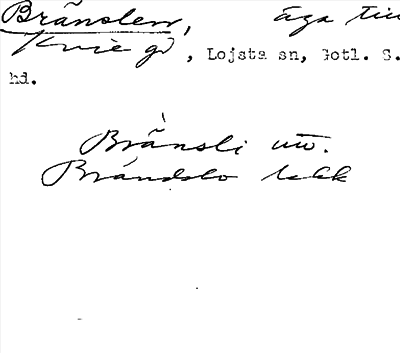 Bränslen, äga till
Kvie gd, Lojsta sn, Gotl. S.
hd.
Bränsli utt.
Brändslo